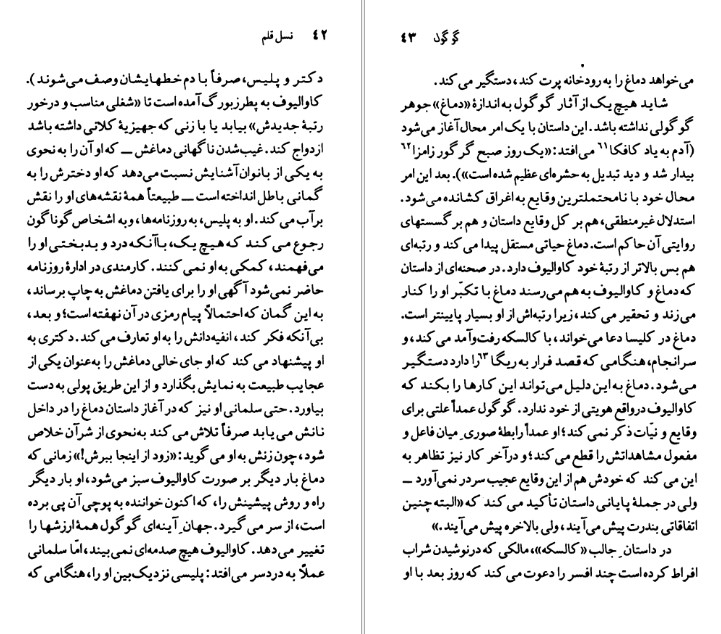 ۴۲ نسل قلم
دکتر و پلیس، صرفاً با دم خطهایشان وصف می‌شوند).
کاوالیوف به پطرزبورگ آمده است تا «شغلی مناسب و درخور
رتبهٔ جدیدش» بیابد یا با زنی که جهیزیهٔ کلانی داشته باشد
ازدواج کند. غیب‌شدن ناگهانی دماغش ــ که او آن را به نحوی
به یکی از بانوان آشنایش نسبت می‌دهد که او دخترش را به
گمانی باطل انداخته است ــ طبیعتاً همهٔ نقشه‌های او را نقش
برآب می‌کند. او به پلیس، به روزنامه‌ها، و به اشخاص گوناگون
رجوع می‌کند که هیچ یک، باآنکه درد و بدبختی او را
می‌فهمند، کمکی به او نمی‌کنند. کارمندی در ادارهٔ روزنامه
حاضر نمی‌شود آگهی او را برای یافتن دماغش به چاپ برساند،
به این گمان که احتمالاً پیام رمزی در آن نهفته است؛ و بعد،
بی‌آنکه فکر کند، انفیه‌دانش را به او تعارف می‌کند. دکتری به
او پیشنهاد می‌کند که او جای خالی دماغش را به‌عنوان یکی از
عجایب طبیعت به نمایش بگذارد و از این طریق پولی به دست
بیاورد. حتی سلمانی او نیز که در آغاز داستان دماغ را در داخل
نانش می‌یابد صرفاً تلاش می‌کند به‌نحوی از شر آن خلاص
شود، چون زنش به او می‌گوید: «زود از اینجا ببرش!» زمانی که
دماغ بار دیگر بر صورت کاوالیوف سبز می‌شود، او بار دیگر
راه و روش پیشینش را، که اکنون خواننده به پوچی آن پی برده
است، از سر می‌گیرد. جهان آینه‌ای گوگول همهٔ ارزشها را
تغییر می‌دهد. کاوالیوف هیچ صدمه‌ای نمی‌بیند، امّا سلمانی
عملاً به دردسر می‌افتد: پلیسی نزدیک‌بین او را، هنگامی که
گوگول ۴۳
می‌خواهد دماغ را به رودخانه پرت کند، دستگیر می‌کند.
شاید هیچ یک از آثار گوگول به اندازهٔ «دماغ» جوهر
گوگولی نداشته باشد. این داستان با یک امر محال آغاز می‌شود
(آدم به یاد کافکا۶۱ می‌افتد: «یک روز صبح گرگور زامزا۶۲
بیدار شد و دید تبدیل به حشره‌ای عظیم شده است»). بعد این امر
محال خود با نامحتملترین وقایع به اغراق کشانده می‌شود.
استدلال غیرمنطقی، هم بر کل وقایع داستان و هم بر گسستهای
روایتی آن حاکم است. دماغ حیاتی مستقل پیدا می‌کند و رتبه‌ای
هم بس بالاتر از رتبهٔ خود کاوالیوف دارد. در صحنه‌ای از داستان
که دماغ و کاوالیوف به هم می‌رسند دماغ با تکبّر او را کنار
می‌زند و تحقیر می‌کند، زیرا رتبه‌اش از او بسیار پایینتر است.
دماغ در کلیسا دعا می‌خواند، با کالسکه رفت‌وآمد می‌کند، و
سرانجام، هنگامی که قصد فرار به ریگا۶۳ را دارد دستگیر
می‌شود. دماغ به این دلیل می‌تواند این کارها را بکند که
کاوالیوف درواقع هویتی از خود ندارد. گوگول عمداً علتی برای
وقایع و نیّات ذکر نمی‌کند؛ او عمداً رابطهٔ صوری میان فاعل و
مفعول مشاهداتش را قطع می‌کند؛ و درآخر کار نیز تظاهر به
این می‌کند که خودش هم از این وقایع عجیب سردر نمی‌آورد ــ
ولی در جملهٔ پایانی داستان تأکید می‌کند که «البته چنین
اتفاقاتی بندرت پیش می‌آیند، ولی بالاخره پیش می‌آیند.»
در داستان جالب «کالسکه»، مالکی که در نوشیدن شراب
افراط کرده است چند افسر را دعوت می‌کند که روز بعد با او